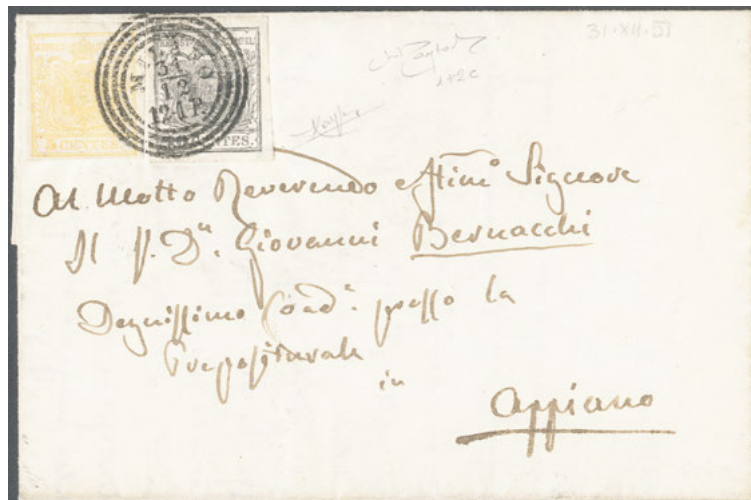 31·XII·51
1+2c
MILANO
31
12
12 1 P.
5 CENTES. 10 CENTES.
Al Molto Reverendo e Stimo Signore
Il S. Dn. Giovanni Bernacchi
Degnissimo Coad.e presso la
Prepositurale
in
Appiano